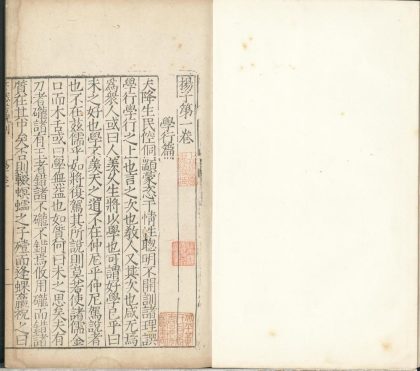 揚子第一卷
學行篇
天降生民倥侗顓蒙恣乎情性聰明不開訓諸理譔
學行學行之上也言之次也教人又其次也咸無焉
爲衆人或曰人羨久生將以學也可謂好學已乎曰
未之好也學不羨天之道不在仲尼乎仲尼駕說者
也不在茲儒乎如將復駕其所說則莫若使諸儒金
口而木舌或曰學無益也如質何曰未之思矣夫有
刀者礲諸有玉者錯諸不礲不錯焉攸用礲而錯諸
質在其中矣否則輟螟 之子殪而逢蜾蠃祝之曰